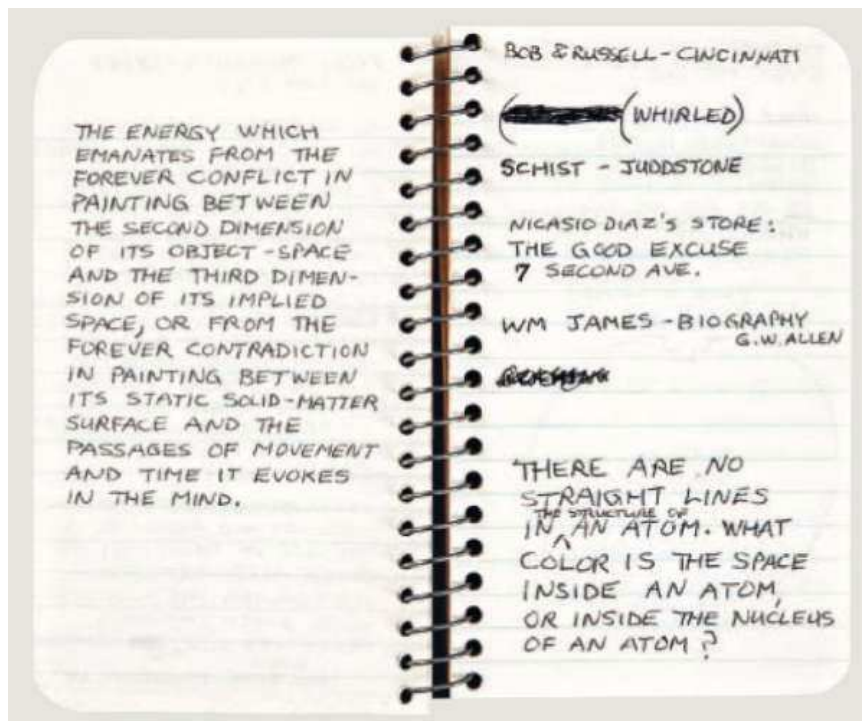 THE ENERGY WHICH
EMANATES FROM THE
FOREVER CONFLICT IN
PAINTING BETWEEN
THE SECOND DIMENSION
OF ITS OBJECT-SPACE
AND THE THIRD DIMEN-
SION OF ITS IMPLIED
SPACE, OR FROM THE
FOREVER CONTRADICTION
IN PAINTING BETWEEN
ITS STATIC SOLID-MATTER
SURFACE AND THE
PASSAGES OF MOVEMENT
AND TIME IT EVOKES
IN THE MIND.
BOB & RUSSELL - CINCINNATI
( (WHIRLED)
SCHIST - JUDDSTONE
NICASIO DIAZ'S STORE:
THE GOOD EXCUSE
7 SECOND AVE.
WM JAMES - BIOGRAPHY
G.W. ALLEN
THERE ARE NO
STRAIGHT LINES
THE STRUCTURE OF
IN ^ AN ATOM. WHAT
COLOR IS THE SPACE
INSIDE AN ATOM,
OR INSIDE THE NUCLEUS
OF AN ATOM?